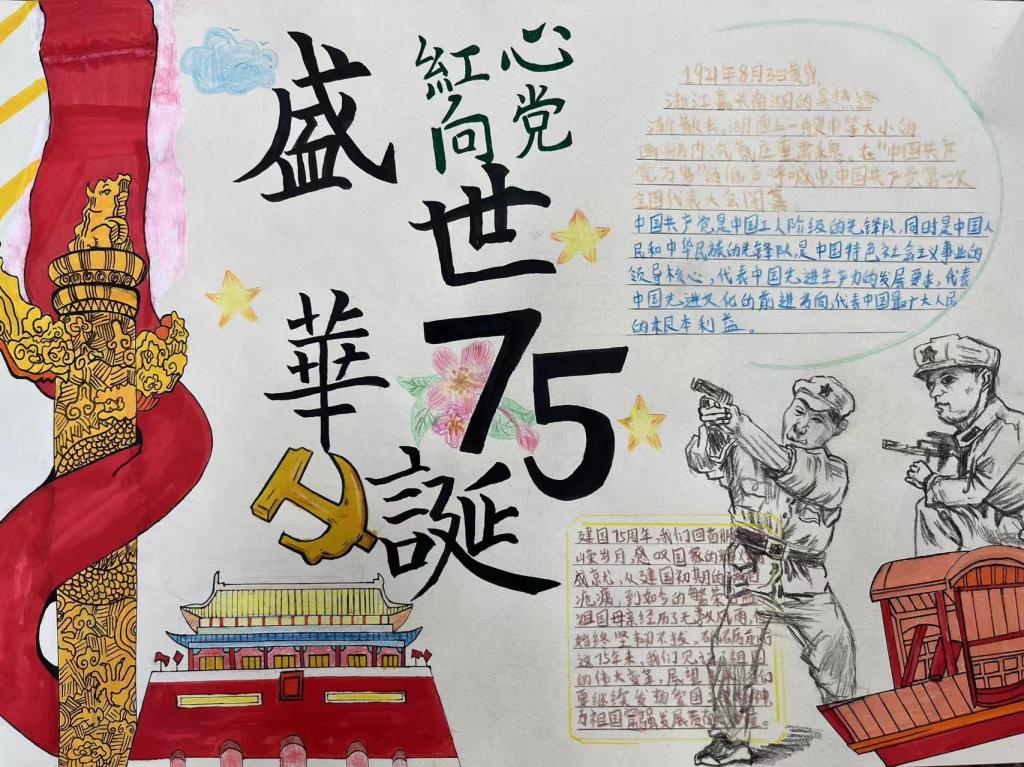 紅心
向党
盛世
75
華誕
1921年8月3日黄昏
浙江嘉兴南湖的
渐散去,湖面上一艘中等大小的
画舫内,气氛庄重肃穆。在"中国共产
党万岁"的低声呼喊中,中国共产党第一次
全国代表大会闭幕。
中国共产党是中国工人阶级的先锋队,同时是中国人
民和中华民族的先锋队,是中国特色社会主义事业的
领导核心,代表中国先进生产力的发展要求,代表
中国先进文化的前进方向,代表中国最广大人民
的根本利益。
建国75周年,我们回首
嵘岁月,感叹国家的
成京尤,从建国初期的
,到如今的繁荣
祖国母亲经历了无数风雨,
始终坚韧不拔,
这75年来,我们见
的伟大变革,展望
要继续发扬爱国
为祖国富强发展贡